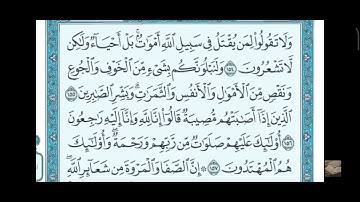 وَلَا تَقُولُوا۟ لِمَن يُقْتَلُ فِى سَبِيلِ ٱللَّهِ أَمْوَٰتٌۢ ۚ بَلْ أَحْيَآءٌ وَلَٰكِن
لَّا تَشْعُرُونَ ١٥٤ وَلَنَبْلُوَنَّكُم بِشَىْءٍ مِّنَ ٱلْخَوْفِ وَٱلْجُوعِ
وَنَقْصٍ مِّنَ ٱلْأَمْوَٰلِ وَٱلْأَنفُسِ وَٱلثَّمَرَٰتِ ۗ وَبَشِّرِ ٱلصَّٰبِرِينَ ١٥٥
ٱلَّذِينَ إِذَآ أَصَٰبَتْهُم مُّصِيبَةٌ قَالُوٓا۟ إِنَّا لِلَّهِ وَإِنَّآ إِلَيْهِ رَٰجِعُونَ
١٥٦ أُو۟لَٰٓئِكَ عَلَيْهِمْ صَلَوَٰتٌ مِّن رَّبِّهِمْ وَرَحْمَةٌ ۖ وَأُو۟لَٰٓئِكَ
هُمُ ٱلْمُهْتَدُونَ ١٥٧ ۞ إِنَّ ٱلصَّفَا وَٱلْمَرْوَةَ مِن شَعَآئِرِ ٱللَّهِ ۖ